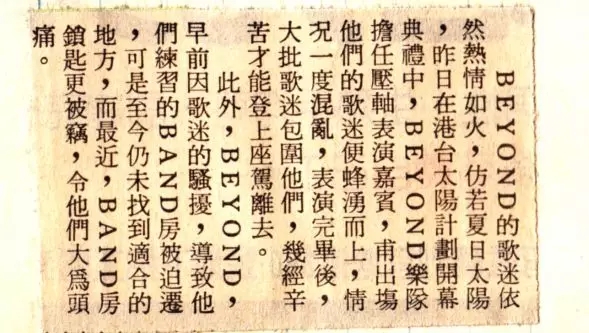 BEYOND的歌迷依
然熱情如火，仿若夏日太陽
，昨日在港台太陽計劃開幕
典禮中，BEYOND樂隊
擔任壓軸表演嘉賓，甫出場
他們的歌迷便蜂湧而上，情
況一度混亂，表演完畢後，
大批歌迷包圍他們，幾經辛
苦才能登上座駕離去。
此外，BEYOND，
早前因歌迷的騷擾，導致他
們練習的BAND房被迫遷
，可是至今仍未找到適合的
地方，而最近，BAND房
鎖匙更被竊，令他們大爲頭
痛。